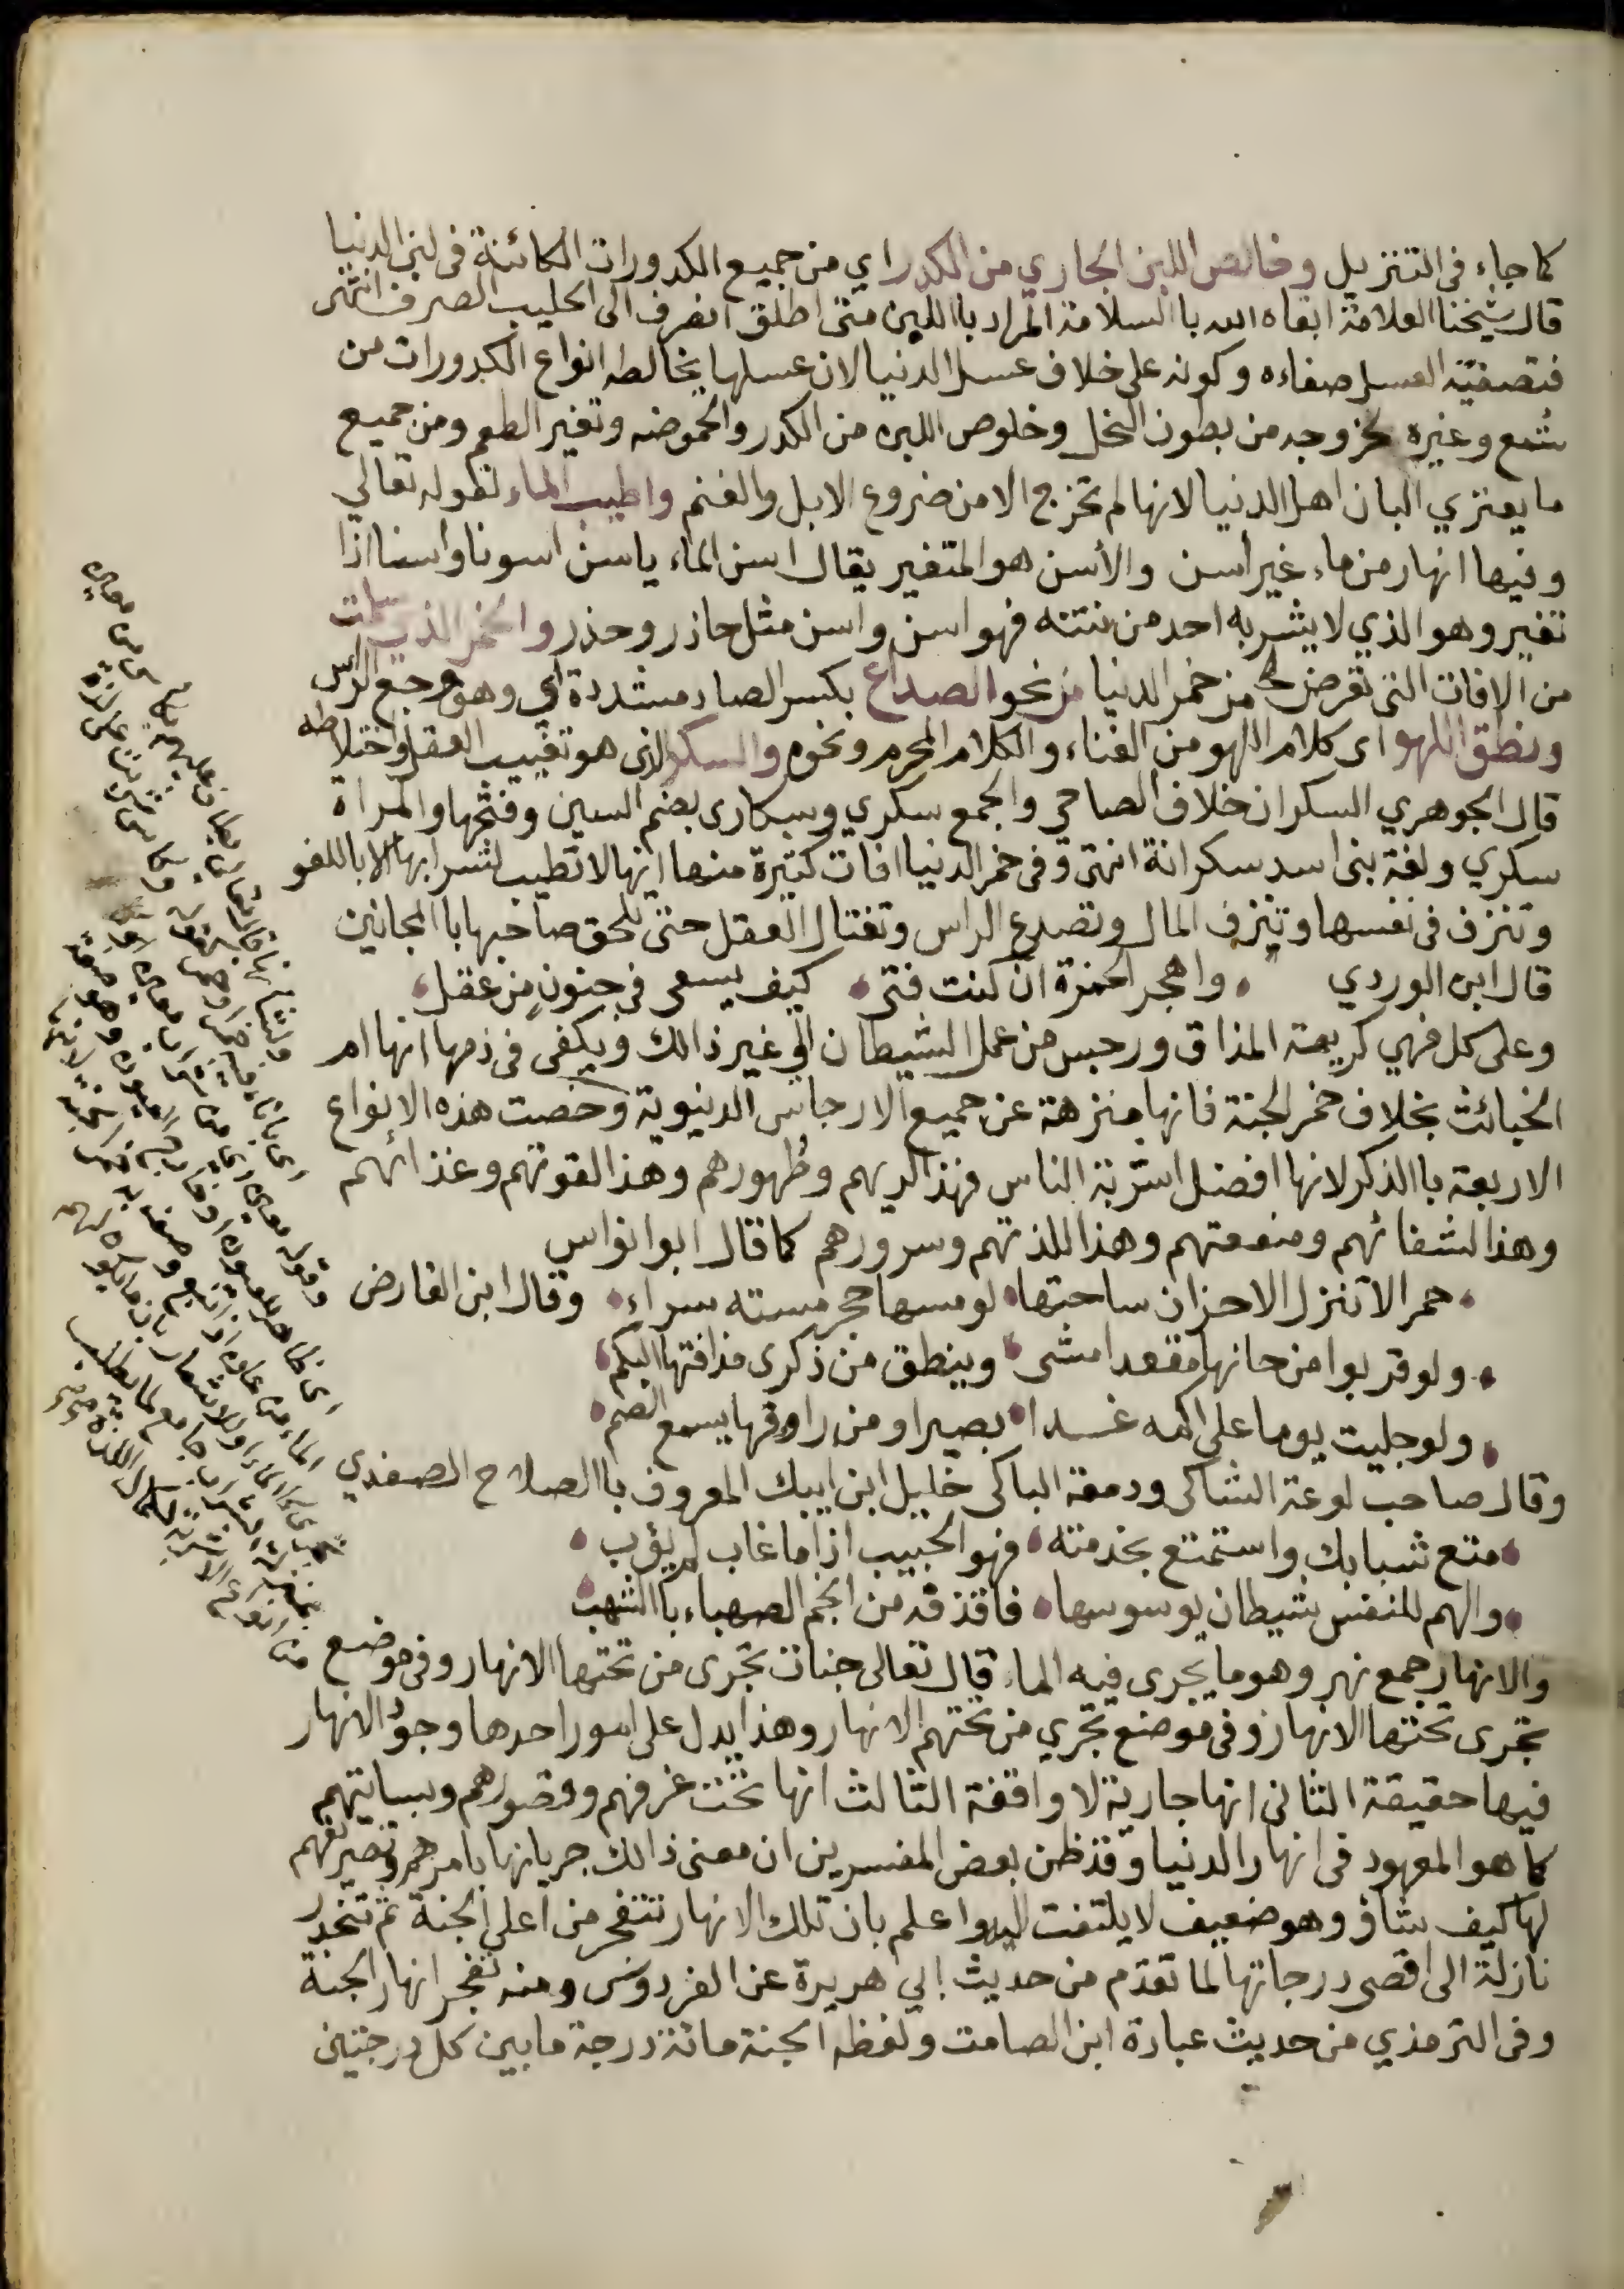 كما جاء فى التنزيل وخالص اللبن الجاري من الكدر اي من جميع الكدورات الكائنة فى لبن الدنيا
قال شيخنا العلامة ابقاه الله باالسلامة المراد باللبن متى اطلق انصرف الى الحليب الصرف انتهى
فتصفية العسل صفاءه وكونه على خلاف عسل الدنيا لان عسلها يخالطه انواع الكدورات من
شمع وغيره لخروجه من بطون النحل وخلوص اللبن من الكدر والحموضه وتغير الطعم ومن جميع
ما يعتري البان اهل الدنيا لانها لم تخرج الا من ضروع الابل والغنم واطيب الماء لقوله تعالي
وفيها انهار من ماء غير اسن والأسن هو المتغير يقال اسن الماء ياسن اسونا واسنا اذا
تغير وهو الذي لا يشربه احد من نتنه فهو اسن واسن مثل حاذر وحذر والخمر الذي سلمت
من الافات التى تعرض لها من خمر الدنيا من نحو الصداع بكسر الصاد مشددة اي وهو وجع الراس
ونطق اللهو اى كلام اللهو من الغناء والكلام المحرم ونحوه والسكر الذى هو تغييب العقل واختلاطه
قال الجوهري السكران خلاف الصاحي والجمع سكري وسكارى بضم السين وفتحها والمراة
سكري ولغة بنى اسد سكرانة انتهى وفى خمر الدنيا افات كثيرة منها انها لا تطيب لشرابها الا باللغو
وتنزف فى نفسها وتنزف المال وتصدع الراس وتغتال العقل حتى تلحق صاحبها باالمجانين
قال ابن الوردي واهجر الخمرة ان كنت فتى كيف يسعى فى جنون من عقل
وعلى كل فهي كريهة المذاق ورجس من عمل الشيطان الي غير ذالك ويكفى فى ذمها انها ام
الخبائث بخلاف خمر الجنة فانها منزهة عن جميع الارجاس الدنيوية وخصت هذه الانواع
الاربعة باالذكر لانها افضل اشربة الناس فهذا لريهم وطهورهم وهذا لقوتهم وغذائهم
وهذا لشفائهم ومنفعتهم وهذا للذتهم وسرورهم كما قال ابوا نواس
حمر الا تنزل الاحزان ساحتها لو مسها حجر مسته سراء وقال ابن الفارض
ولو قربوا من حانها مقعدا مشى وينطق من ذكرى مذاقتها البكم
ولو جليت يوما على اكمه غدا بصيرا ومن راووقها يسمع الصم
وقال صاحب لوعة الشاكى ودمعة الباكى خليل ابن ايبك المعروف باالصلاح الصفدي
متع شبابك واستمتع بخدمته فهو الحبيب اذا ما غاب لم يؤب
والهم للنفس شيطان يوسوسها فاقذفه من انجم الصهباء باالشهب
والانهار جمع نهر وهو ما يجرى فيه الماء قال تعالى جنات تجرى من تحتها الانهار وفى موضع
تجرى تحتها الانهار وفى موضع تجري من تحتهم الانهار وهذا يدل على امور احدها وجود الانهار
فيها حقيقة الثانى انها جارية لا واقفة الثالث انها تحت غرفهم وقصورهم وبساتينهم
كما هو المعهود فى انهار الدنيا وقد ظن بعض المفسرين ان معنى ذالك جريانها بامرهم وتصريفهم
لها كيف شاؤ وهو ضعيف لا يلتفت اليه واعلم بان تلك الانهار تتفجر من اعلى الجنة ثم تنحدر
نازلة الى اقصى درجاتها لما تقدم من حديث ابي هريرة عن الفردوس ومنه تفجر انهار الجنة
وفى الترمذي من حديث عبادة ابن الصامت ولفظه الجنة مائة درجة ما بين كل درجتين